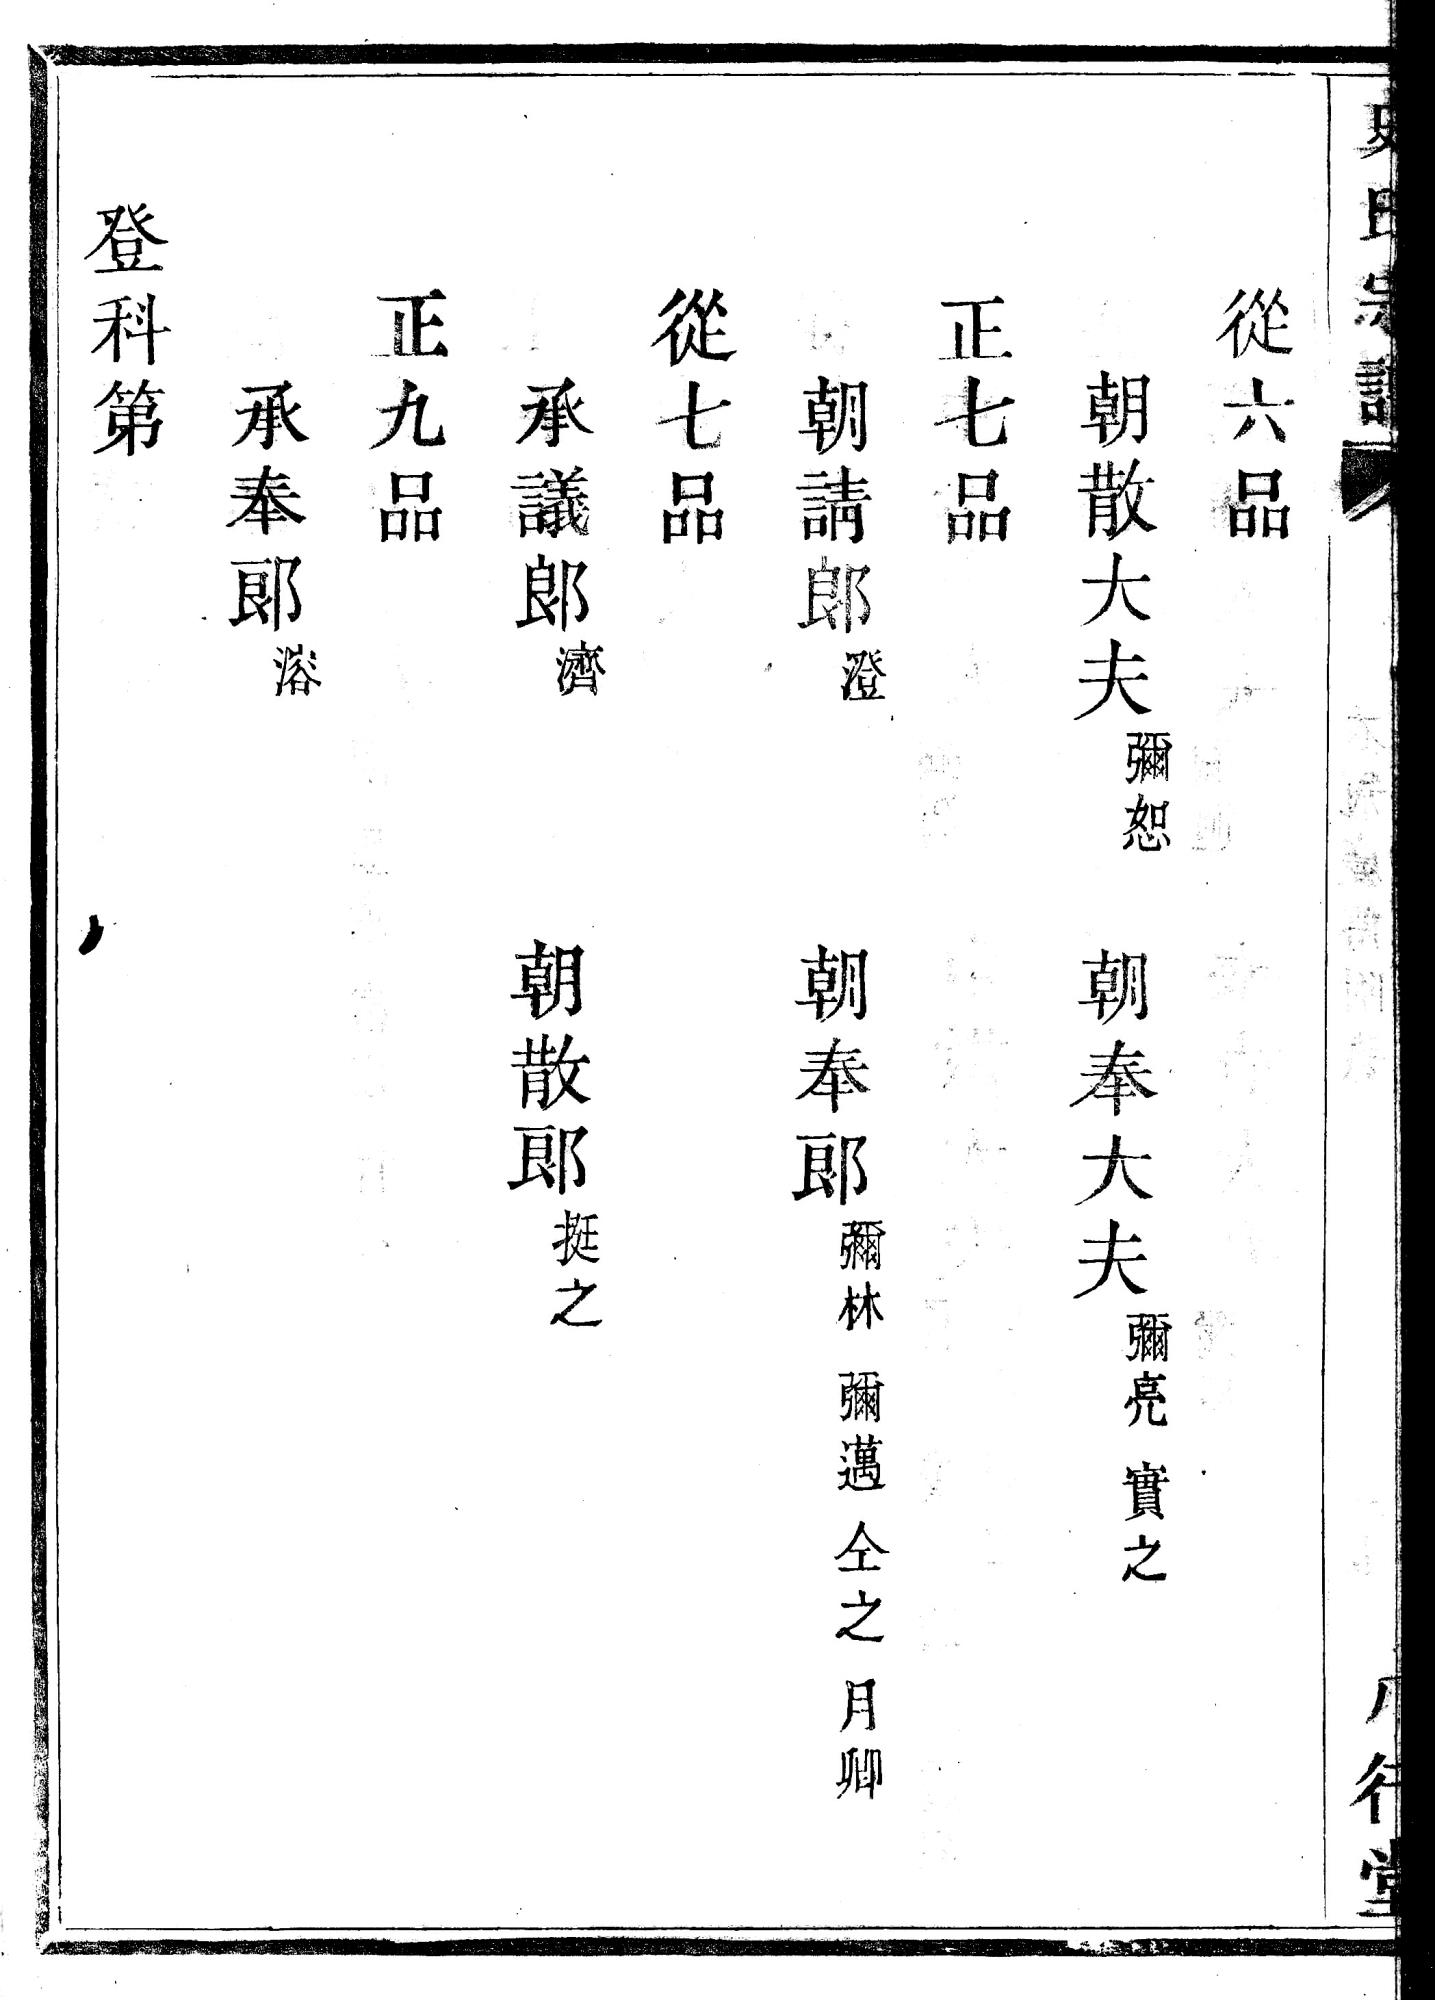 史氏宗譜
八行堂
從六品
朝散大夫 彌恕 朝奉大夫 彌亮 實之
正七品
朝請郎 澄 朝奉郎 彌林 彌邁 仝之 月卿
從七品
承議郎 濟 朝散郎 挺之
正九品
承奉郎 溶
登科第